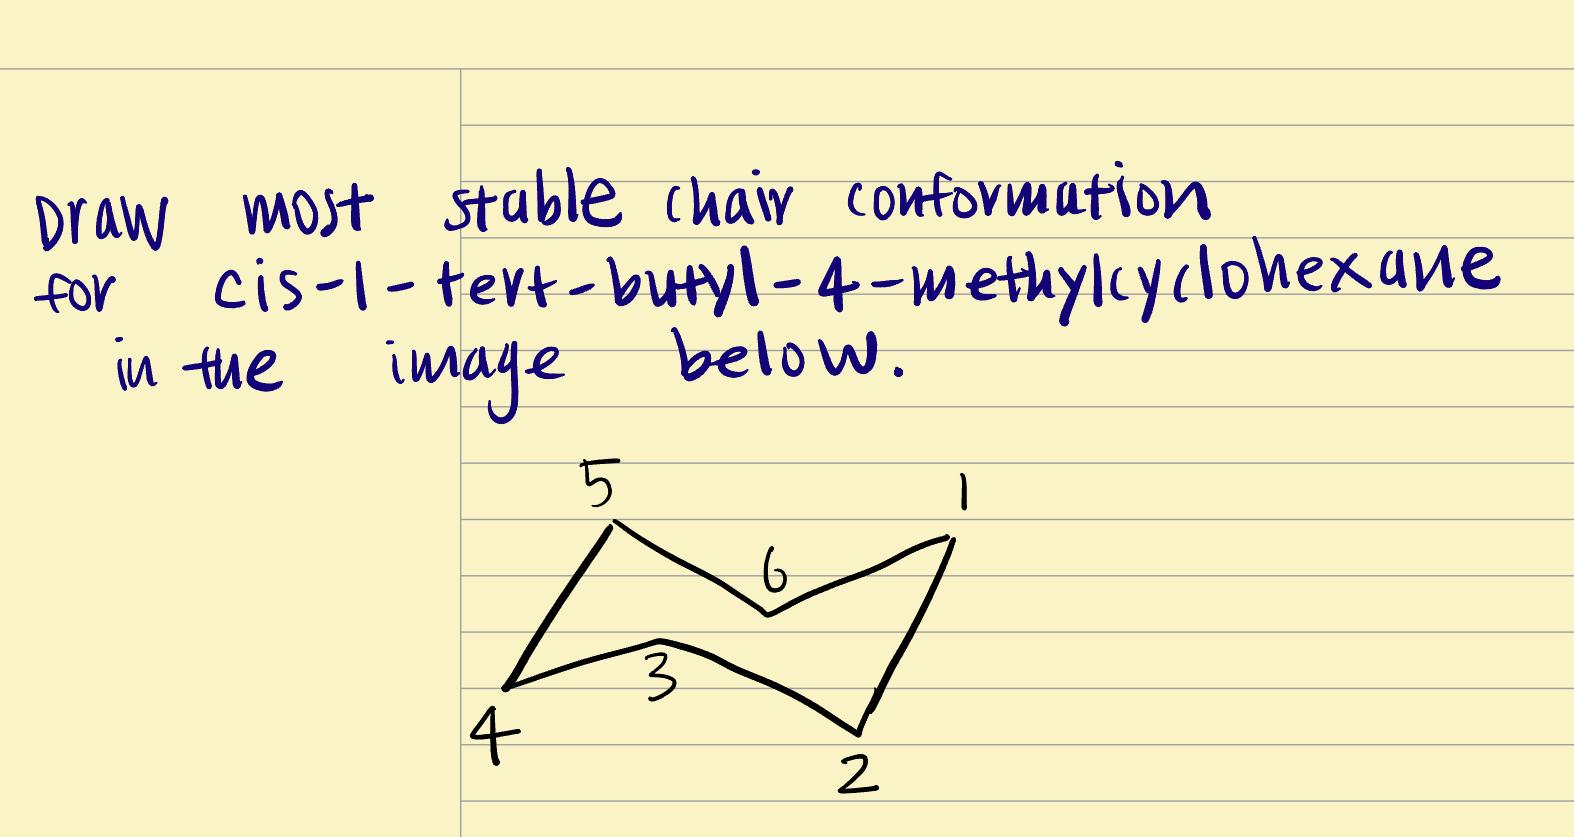 Draw most stable chair conformation
for cis-1-tert-butyl-4-methylcyclohexane
in the image below.
5
1
6
3
4
2